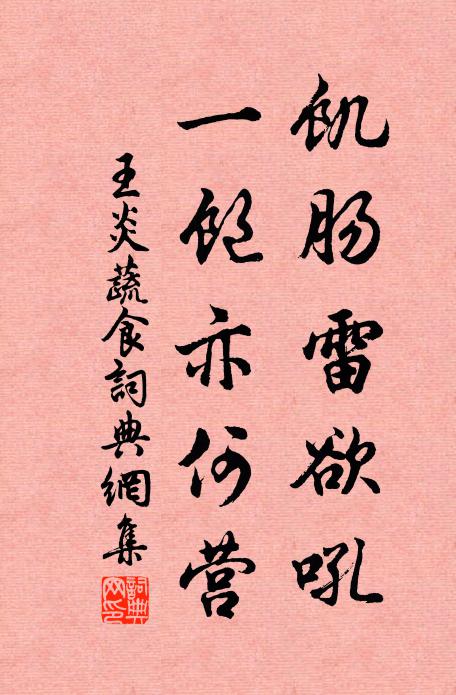 飢肠雷欲吼
一飽亦何营
王炎蔬食詞典網集
詞典網印